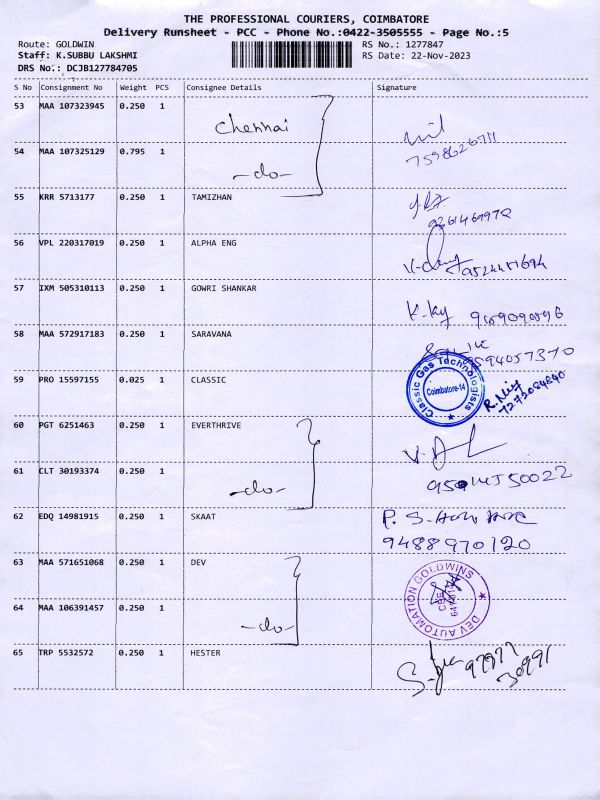 THE PROFESSIONAL COURIERS, COIMBATORE
Delivery Runsheet - PCC - Phone No.:0422-3505555 - Page No.:5
Route: GOLDWIN RS No.: 1277847
Staff: K.SUBBU LAKSHMI RS Date: 22-Nov-2023
DRS No.: DCJB127784705
S No Consignment No Weight PCS Consignee Details Signature
53 MAA 107323945 0.250 1 Chennai
54 MAA 107325129 0.795 1 -do-
55 KRR 5713177 0.250 1 TAMIZHAN
56 VPL 220317019 0.250 1 ALPHA ENG
57 IXM 505310113 0.250 1 GOWRI SHANKAR
58 MAA 572917183 0.250 1 SARAVANA
9594057370
59 PRO 15597155 0.025 1 CLASSIC
Classic Gas Technologists
Coimbatore-14
7272084840
60 PGT 6251463 0.250 1 EVERTHRIVE
61 CLT 30193374 0.250 1 -do-
62 EDQ 14981915 0.250 1 SKAAT
9488970120
63 MAA 571651068 0.250 1 DEV
DEV AUTOMATION GOLDWINS
64 MAA 106391457 0.250 1 -do-
65 TRP 5532572 0.250 1 HESTER